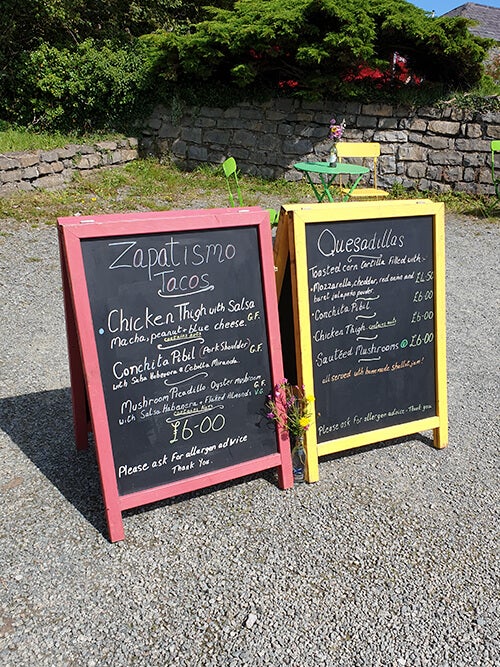 Zapatismo
Tacos
Chicken Thigh with Salsa
macha, peanut + blue cheese. G.F.
contains nuts
Conchita Pibil (Pork Shoulder) G.F.
with Salsa Habanera & Cebolla Miranda
Mushroom Picadillo, Oyster mushroom G.F
with Salsa Habanera + Flaked Almonds V.G.
contains nuts
£6-00
Please ask for allergen advice
Thank You.
Quesadillas
Toasted corn tortilla filled with:-
Mozzarella, cheddar, red onion and £4.50
burnt jalapeño powder.
Conchita Pibil £6-00
Chicken Thigh contains nuts £6-00
Sauteéd Mushrooms £6-00
all served with homemade shallot jam!
Please ask for allergen advice. Thank you